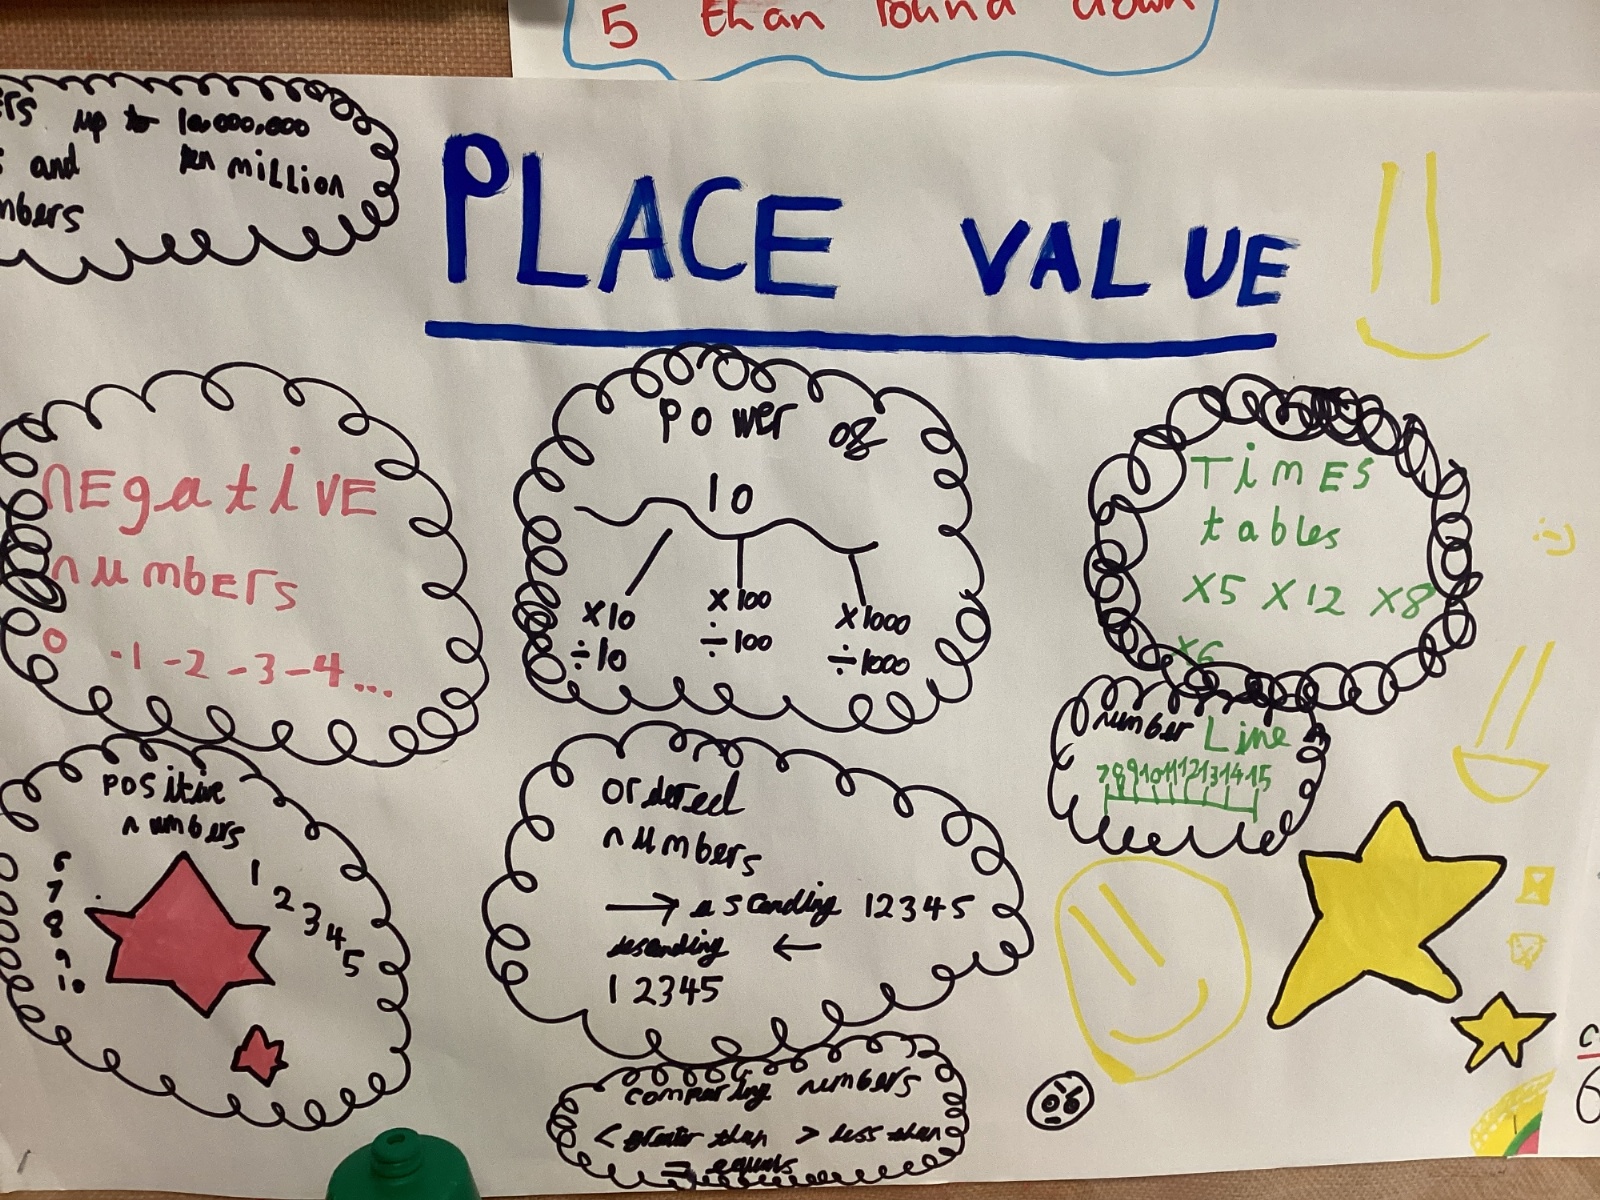 5 than round down
ers up to 10,000,000
s and ten million
mbers
PLACE VALUE
nEgatiVE
numbErs
0 -1 -2 -3 -4...
power of
10
×10 ×100 ×1000
÷10 ÷100 ÷1000
TimES
tables
×5 ×12 ×8
×6
number Line
7 8 9 10 11 12 13 14 15
positive
numbers
6 7 8 9 10
1 2 3 4 5
ordered
numbers
→ ascending 12345
descending ←
12345
comparing numbers
< greater than > less than
= equals